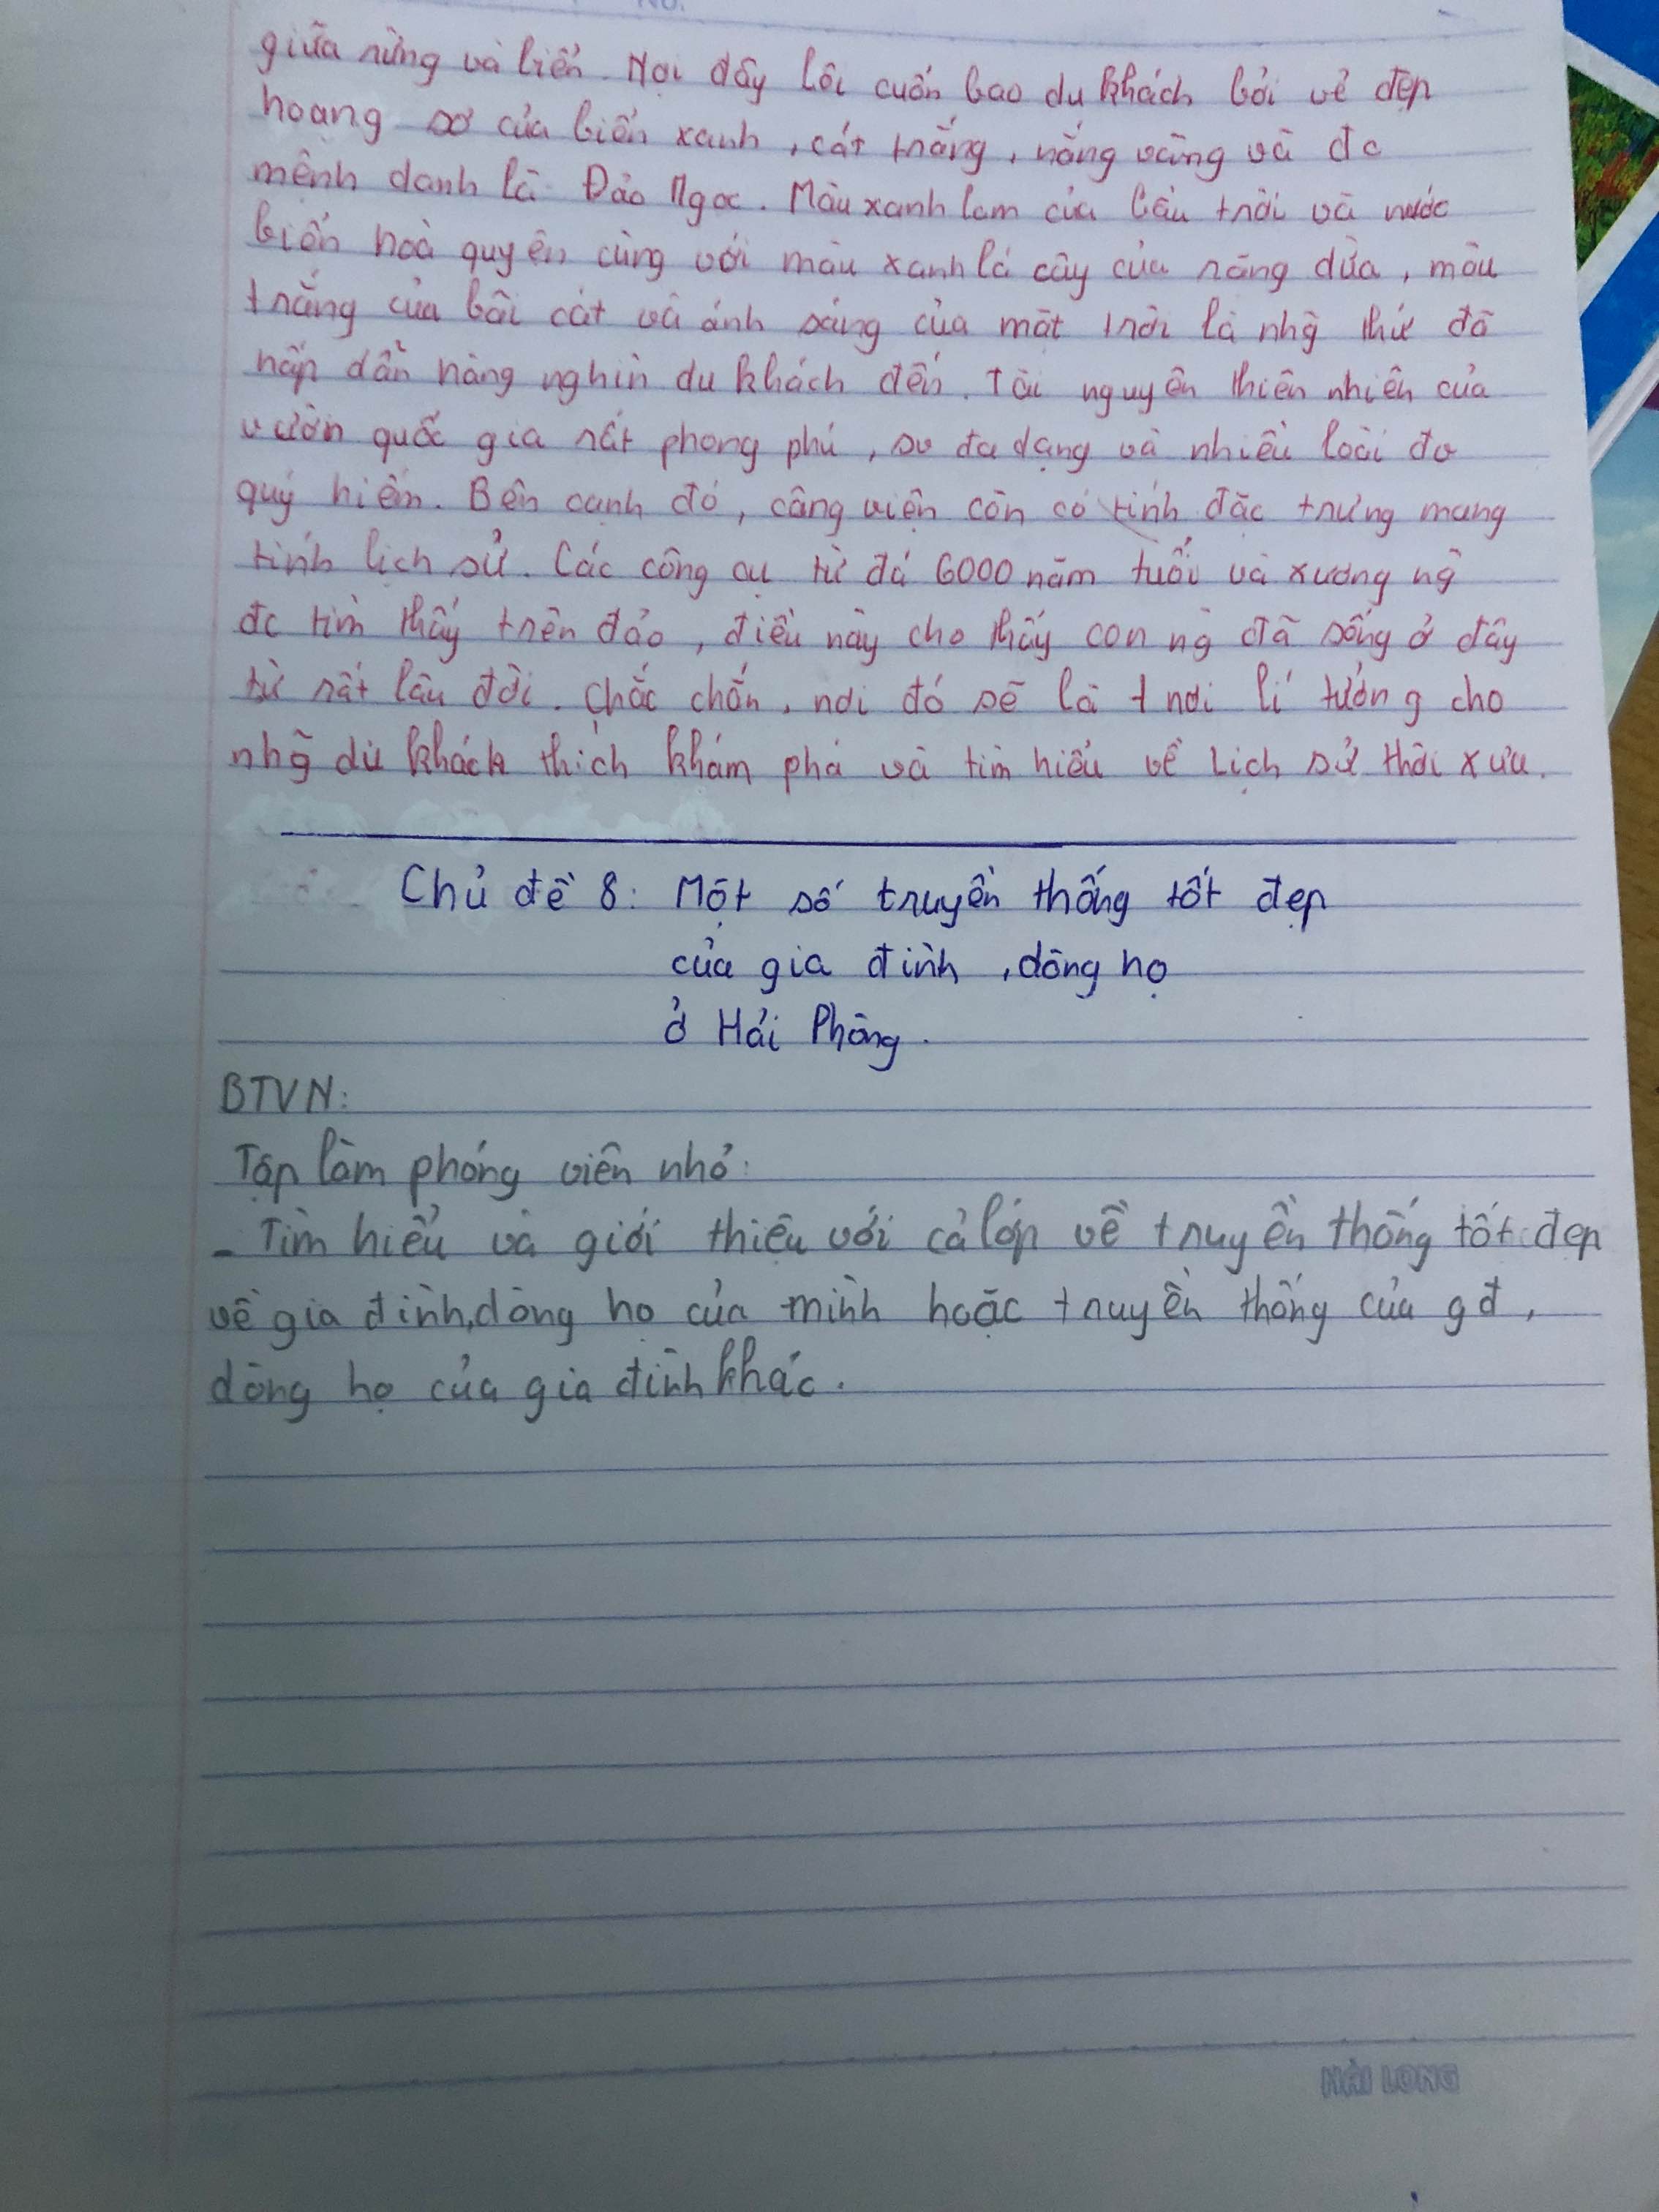 No.
giữa rừng và biển. Nơi đây lôi cuốn bao du khách bởi vẻ đẹp
hoang sơ của biển xanh, cát trắng, nắng vàng và đc
mệnh danh là Đảo Ngọc. Màu xanh lam của bầu trời và nước
biển hoà quyện cùng với màu xanh lá cây của rặng dừa, màu
trắng của bãi cát và ánh sáng của mặt trời là nhg̃ thứ đã
hấp dẫn hàng nghìn du khách đến. Tài nguyên thiên nhiên của
vườn quốc gia rất phong phú, sự đa dạng và nhiều loài đv
quý hiếm. Bên cạnh đó, công viên còn có tính đặc trưng mang
tính lịch sử. Các công cụ từ đá 6000 năm tuổi và xương ng̀
đc tìm thấy trên đảo, điều này cho thấy con ng̀ đã sống ở đây
từ rất lâu đời. Chắc chắn, nơi đó sẽ là 1 nơi lí tưởng cho
nhg̃ du khách thích khám phá và tìm hiểu về lịch sử thời xưa.
Chủ đề 8: Một số truyền thống tốt đẹp
của gia đình, dòng họ
ở Hải Phòng.
BTVN:
Tập làm phóng viên nhỏ:
- Tìm hiểu và giới thiệu với cả lớp về truyền thống tốt đẹp
về gia đình, dòng họ của mình hoặc truyền thống của gđ,
dòng họ của gia đình khác.
HẢI LONG